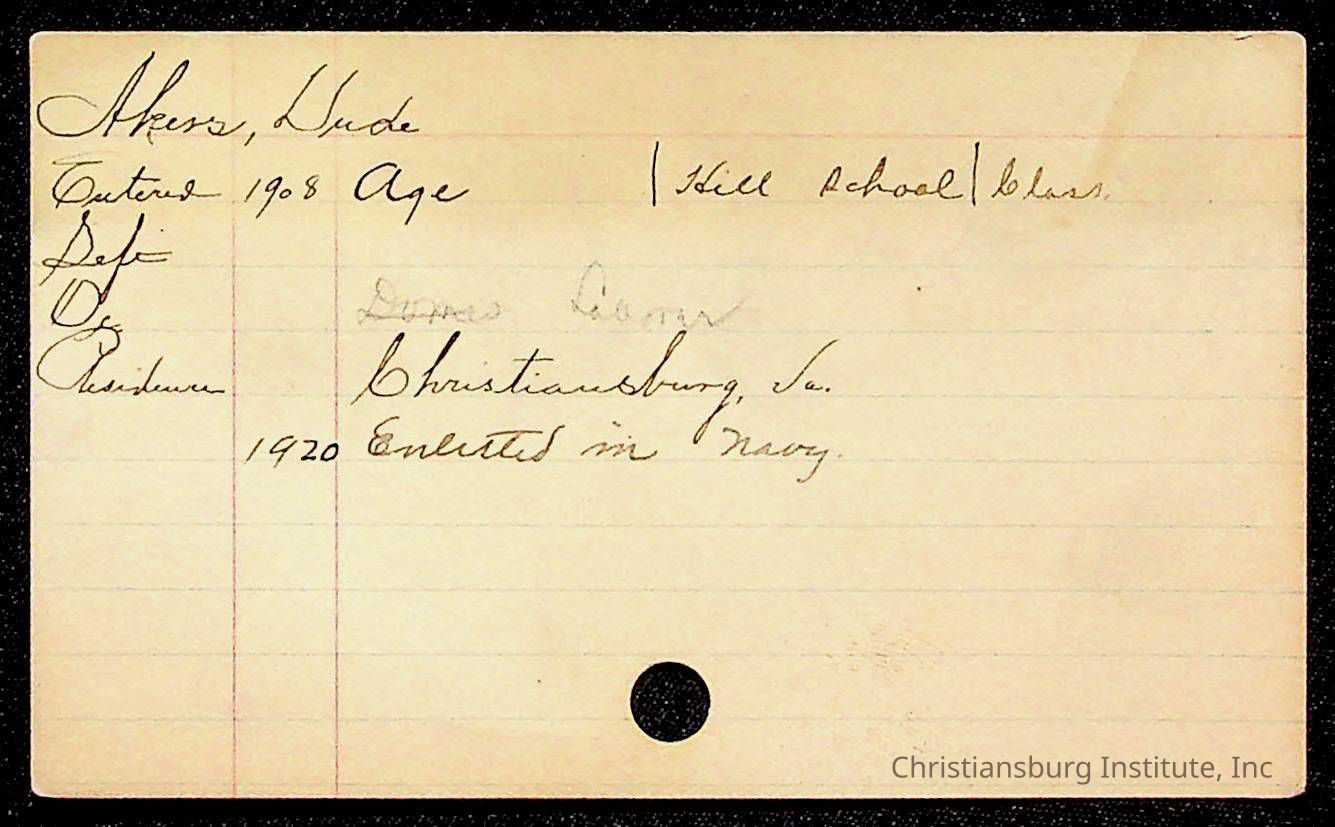 Akers, Dude
Entered 1908 Age | Hill School | Class
Left
Oc
Residence Christiansburg, Va.
1920 Enlisted in Navy.
Christiansburg Institute, Inc